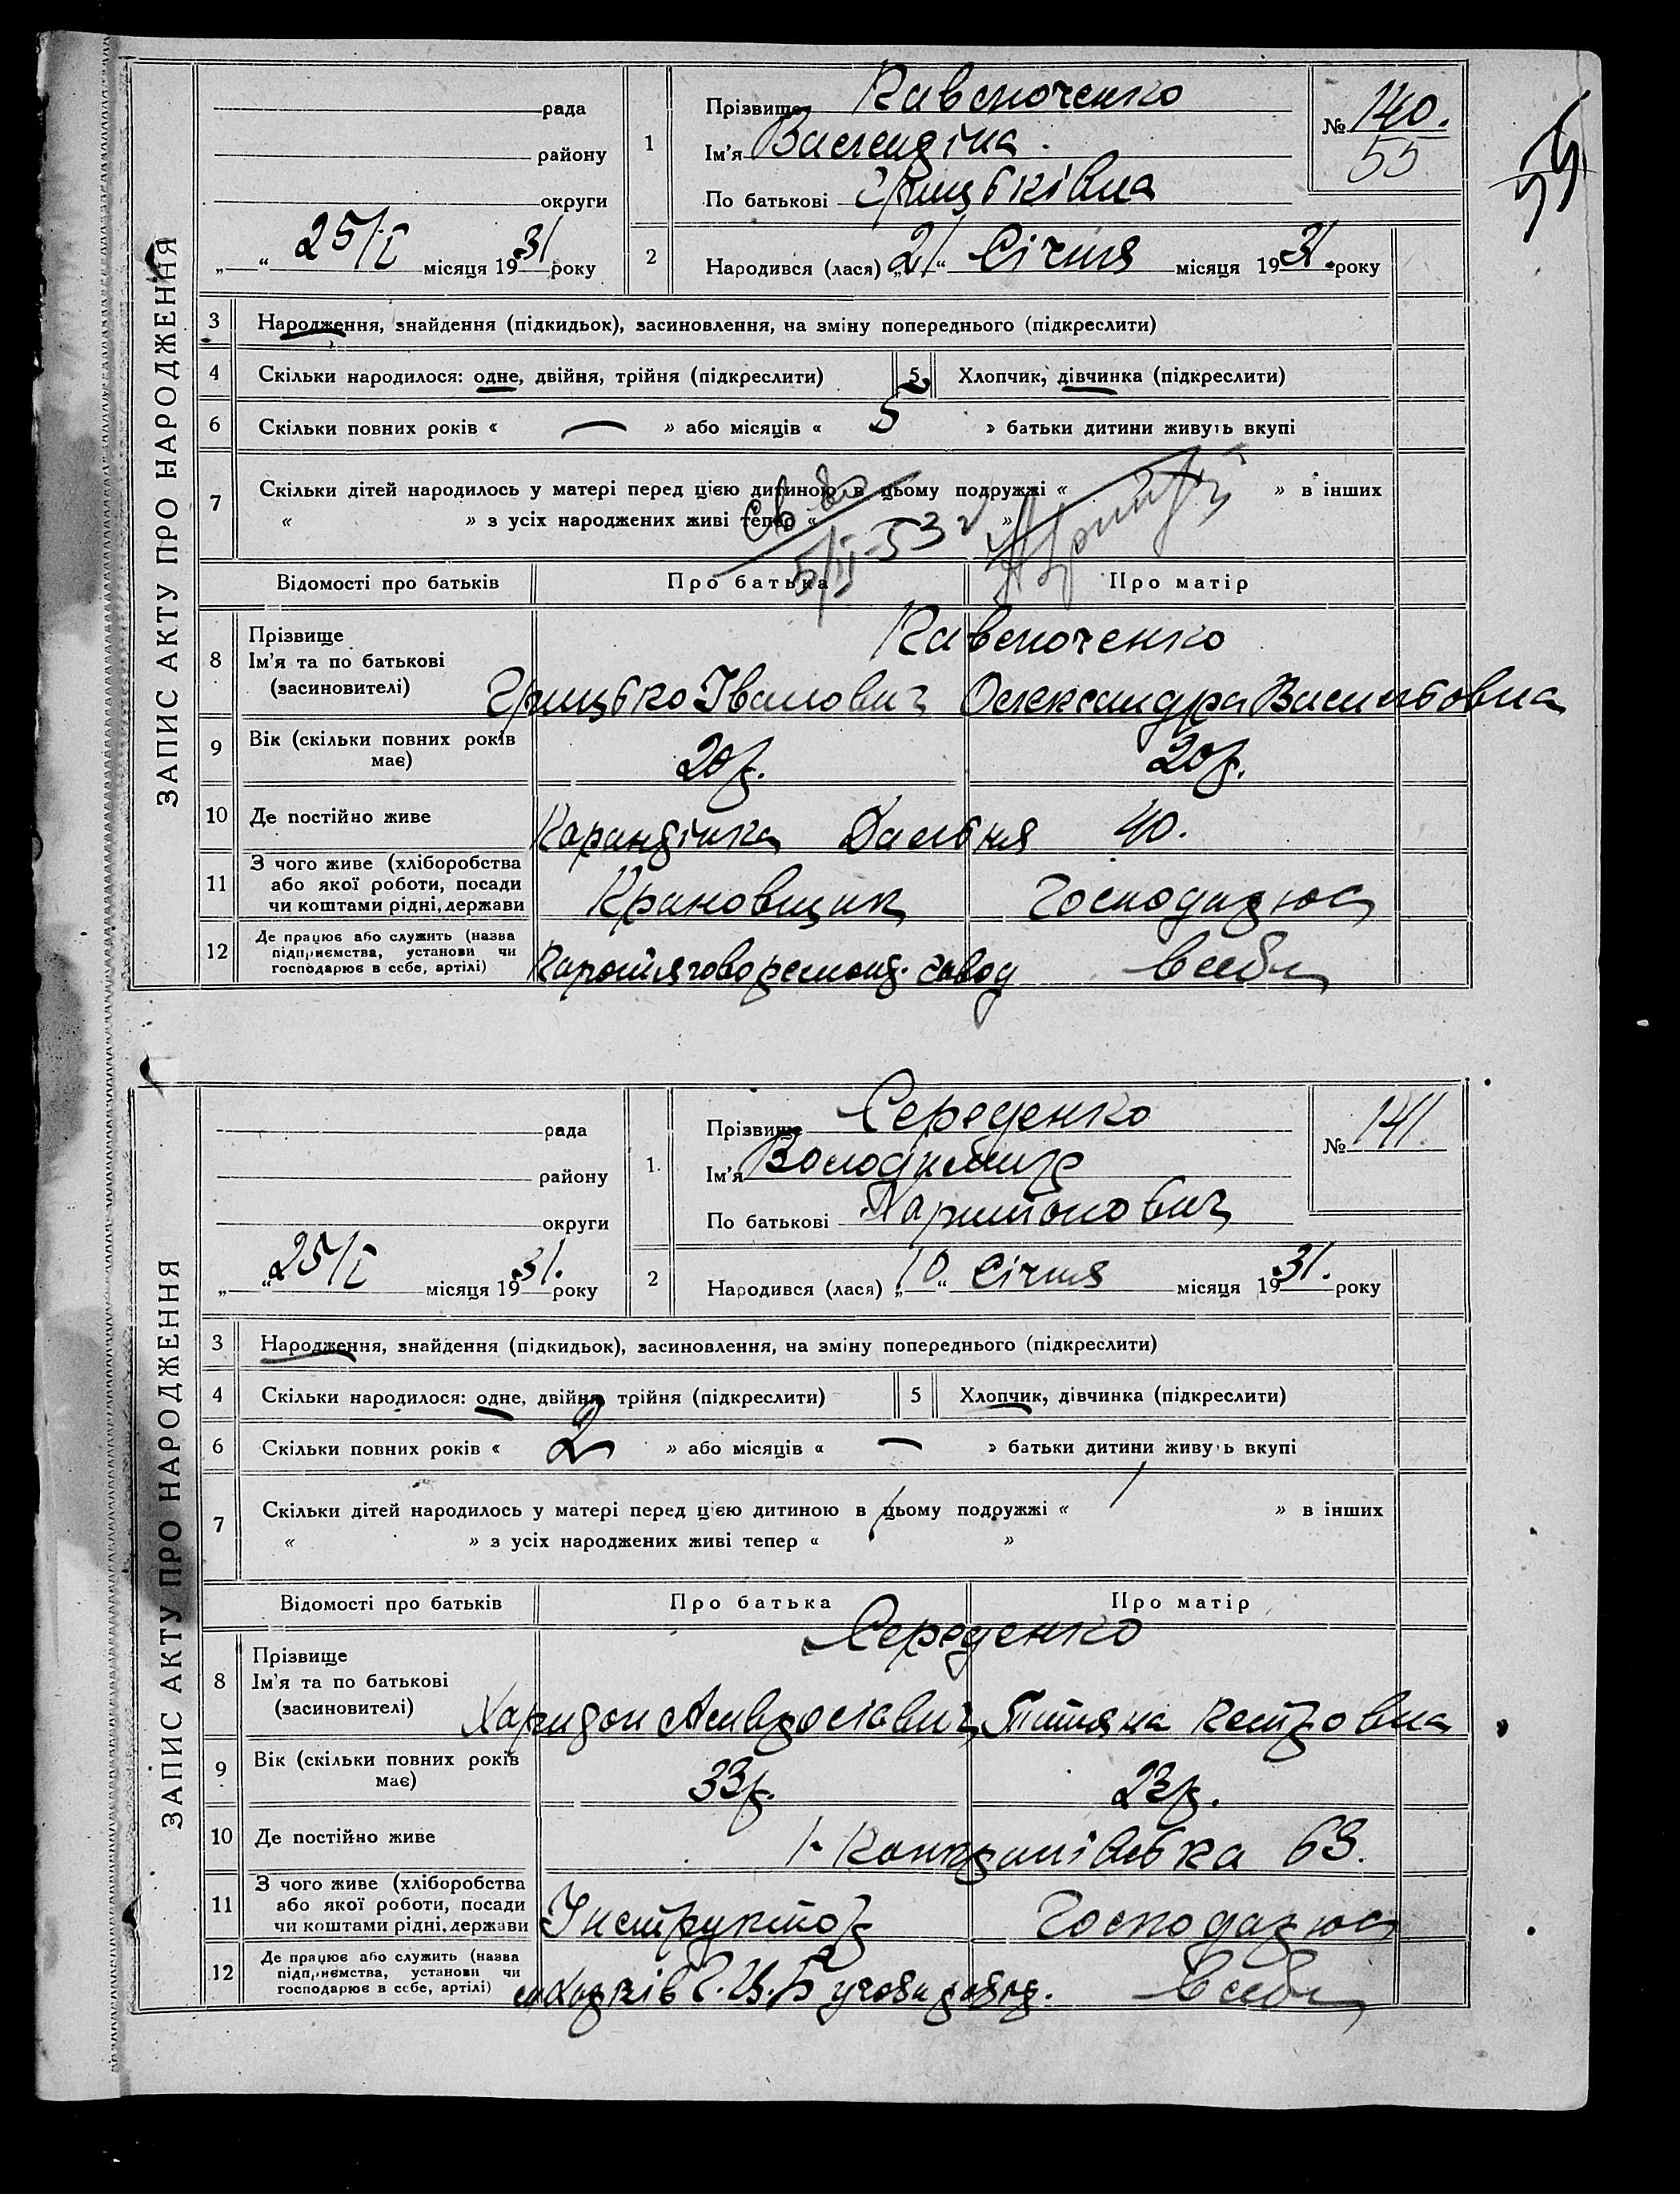 ЗАПИС АКТУ ПРО НАРОДЖЕННЯ
рада
району
округи
„ “ 25/I місяця 1931 року
1
Прізвище
Ім'я Валендіна.
По батькові Грицьківна
№ 140.
55
2
Народився (лася) „21“ Січня місяця 1931. року
3 Народження, знайдення (підкидьок), засиновлення, на зміну попереднього (підкреслити)
4 Скільки народилося: одне, двійня, трійня (підкреслити)
5 Хлопчик, дівчинка (підкреслити)
6 Скільки повних років « — » або місяців « 5 » батьки дитини живуть вкупі
7 Скільки дітей народилось у матері перед цією дитиною в цьому подружжі « » в інших
« » з усіх народжених живі тепер « »
5/II-53
Відомості про батьків Про батька Про матір
8 Прізвище
Ім'я та по батькові
(засновителі)
Грицько Іванович Олександра Васильовна
9 Вік (скільки повних років має) 20р. 20р.
10 Де постійно живе Карандінка Дальня 40.
11 З чого живе (хліборобства
або якої роботи, посади
чи коштами рідні, держави
Крановщик Господарює
12 Де працює або служить (назва
підприємства, установи чи
господарює в себе, артілі)
завод в себе
ЗАПИС АКТУ ПРО НАРОДЖЕННЯ
рада
району
округи
„ “ 25/I місяця 1931. року
1.
Прізвище Середенко
Ім'я Володимир
По батькові Харитонович
№ 141.
2
Народився (лася) „10“ Січня місяця 1931. року
3 Народження, знайдення (підкидьок), засиновлення, на зміну попереднього (підкреслити)
4 Скільки народилося: одне, двійня, трійня (підкреслити)
5 Хлопчик, дівчинка (підкреслити)
6 Скільки повних років « 2 » або місяців « — » батьки дитини живуть вкупі
7 Скільки дітей народилось у матері перед цією дитиною в цьому подружжі « 1 » в інших
« » з усіх народжених живі тепер « 1 »
Відомості про батьків Про батька Про матір
8 Прізвище
Ім'я та по батькові
(засиновителі)
Середенко
Харидон Амвросіавич Тітяна Петровна
9 Вік (скільки повних років має) 33р. 23р.
10 Де постійно живе 63.
11 З чого живе (хліборобства
або якої роботи, посади
чи коштами рідні, держави
Інструктор Господарює
12 Де працює або служить (назва
підприємства, установи чи
господарює в себе, артілі)
в себе